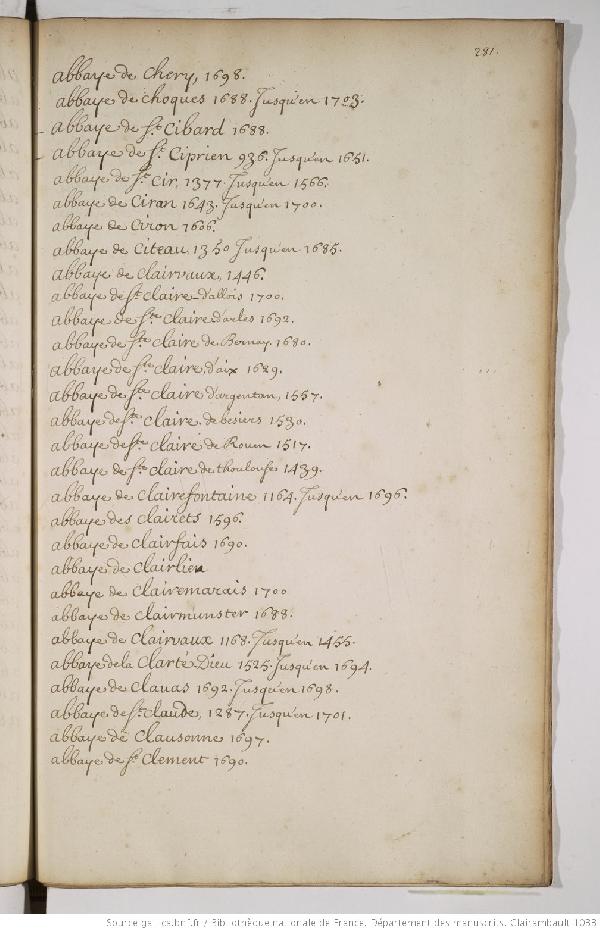 281.
abbaye de Chery, 1698.
abbaye de choques 1688. Jusqu'en 1703.
abbaye de St. Cibard 1688.
abbaye de St. Ciprien 936. Jusqu'en 1651.
abbaye de St. Cir, 1377. Jusqu'en 1566.
abbaye de Ciran 1643. Jusqu'en 1700.
abbaye de Ciron 1606.
abbaye de Citeau, 1350 Jusqu'en 1685.
abbaye de Clairvaux, 1446.
abbaye de Ste claire d'allois 1700.
abbaye de Ste claire d'arles 1692.
abbaye de Ste claire de Bernay. 1680.
abbaye de Ste claire d'aix 1629.
abbaye de Ste claire d'argentan, 1557.
abbaye de Ste claire de besiers 1530.
abbaye de Ste claire de Rouen 1517.
abbaye de Ste claire de thoulouse 1439.
abbaye de Clairefontaine 1164. Jusqu'en 1696.
abbaye des clairets 1596.
abbaye de clairfais 1690.
abbaye de Clairlieu
abbaye de Clairemarais 1700
abbaye de Clairmunster 1688.
abbaye de Clairvaux 1168. Jusqu'en 1455.
abbaye de la Clarté Dieu 1525. Jusqu'en 1694.
abbaye de Clauas 1692. Jusqu'en 1698.
abbaye de St. Claude, 1287. Jusqu'en 1701.
abbaye de Clausonne 1697.
abbaye de St. Clement 1690.
Source gallica.bnf.fr / Bibliothèque nationale de France. Département des manuscrits. Clairambault 1033